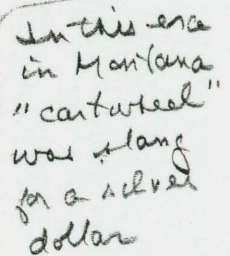 In this era
in Montana
"cartwheel"
was slang
for a silver
dollar